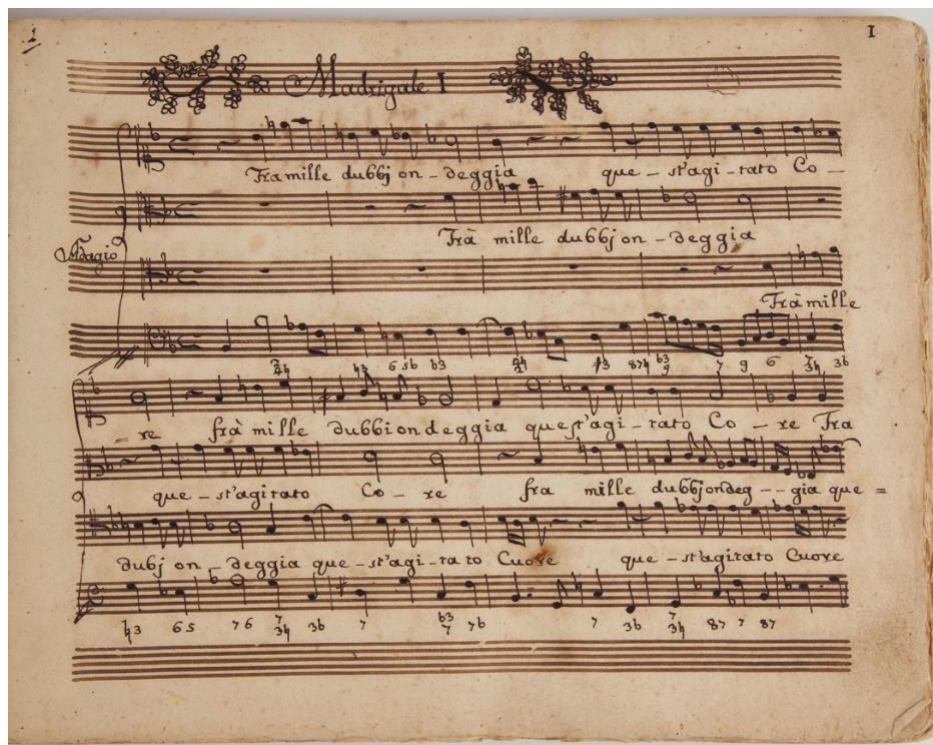 1 I
Madrigale I
Frà mille dubbj on - deggia que - st'agi - tato Co -
Frà mille dubbj on - deggia
Adagio
Frà mille
6 5b b3 b3
7 9 6 3b
- re frà mille dubbi ondeggia quest'agi - tato Co - re Fra
que - st'agitato Co - re fra mille dubbjondeg - - gia que =
dubj on - deggia que - st'agi - ta to Cuore que - st'agitato Cuore
♮3 65 76 7 3b 7 b3 7b 7 3b 7 87 7 87